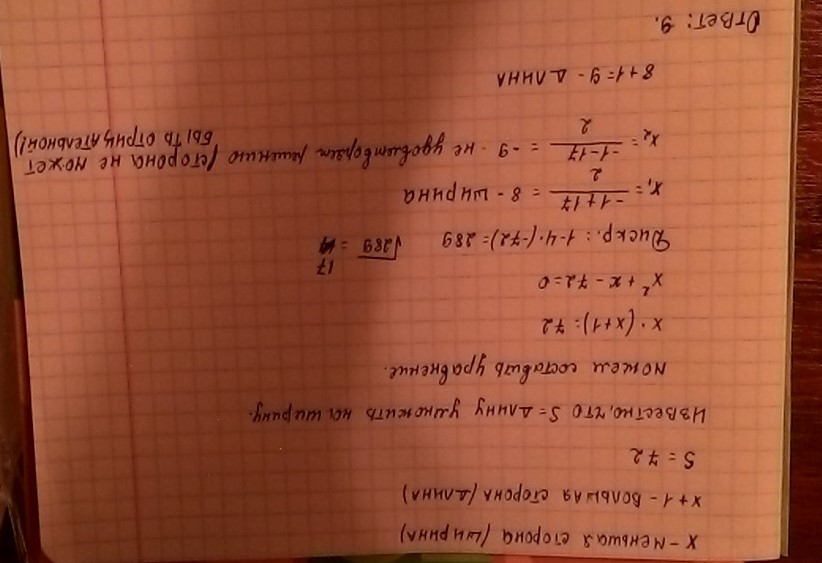 x - меньшая сторона (ширина)
x+1 - большая сторона (длина)
S = 72
Известно, что S = длину умножить на ширину.
можем составить уравнение.
x·(x+1)=72
x² + x - 72=0
Дискр.: 1-4·(-72)=289 √289 = 17
x₁= (-1+17)/2 = 8 - ширина
x₂= (-1-17)/2 = -9 - не удовлетворяет решению (сторона не может
быть отрицательной!)
8+1=9 - длина
Ответ: 9.